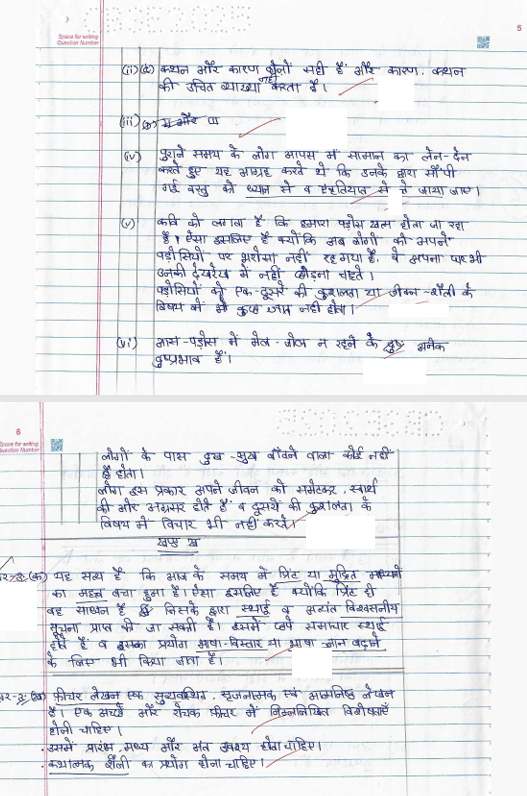 Space for writing
Question Number
5
(ii) (d) कथन और कारण दोनों सही हैं और कारण, कथन
की उचित व्याख्या नहीं करता है।
(iii)
(iv) पुराने समय के लोग आपस में सामान का लेन-देन
करते हुए यह आग्रह करते थे कि उनके द्वारा सौंपी
गई वस्तु को ध्यान से व एहतियात से ले जाया जाए।
(v) कवि को लगता है कि हमारा पड़ोस खत्म होता जा रहा
है। ऐसा इसलिए है क्योंकि अब लोगों को अपने
पड़ोसियों पर भरोसा नहीं रह गया है, वे अपना घर भी
उनकी देखरेख में नहीं छोड़ना चाहते।
पड़ोसियों को एक-दूसरे की कुशलता या जीवन-शैली के
विषय में भी कुछ ज्ञात नहीं होता।
(vi) आस-पड़ोस में मेल-जोल न रहने के अनेक
दुष्प्रभाव हैं।
6
Space for writing
Question Number
लोगों के पास दुख-सुख बाँटने वाला कोई नहीं
होता।
लोग इस प्रकार अपने जीवन को समेटकर, स्वार्थ
की ओर अग्रसर होते हैं व दूसरों की कुशलता के
विषय में विचार भी नहीं करते।
खण्ड ख
(क) यह सत्य है कि आज के समय में प्रिंट या मुद्रित माध्यमों
का महत्व बचा हुआ है। ऐसा इसलिए है क्योंकि प्रिंट ही
वह साधन है जिसके द्वारा स्थाई व अत्यंत विश्वसनीय
सूचना प्राप्त की जा सकती है। इसमें छपे समाचार स्थाई
होते हैं व इसका प्रयोग भाषा-विस्तार या भाषा ज्ञान बढ़ाने
के लिए भी किया जाता है।
(ख) फ़ीचर लेखन एक सुव्यवस्थित, सृजनात्मक एवं आत्मनिष्ठ लेखन
है। एक अच्छे और रोचक फ़ीचर में निम्नलिखित विशेषताएँ
होनी चाहिए।
• उसमें प्रारंभ, मध्य और अंत अवश्य होना चाहिए।
• कथात्मक शैली का प्रयोग होना चाहिए।